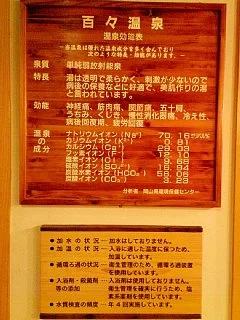 百々温泉
温泉効能表
当温泉は優れた温泉成分を多く含んでおり
次のような特長・効能があります
泉質 単純弱放射能泉
特長 湯は透明で柔らかく、刺激が少ないので
病後の保養などに好適で、美肌作りの湯
と言われています。
効能 神経痛、筋肉痛、関節痛、五十肩、
うちみ、くじき、慢性消化器病、冷え性、
病後回復期、疲労回復
温泉の成分
ナトリウムイオン(Na⁺) 70.16
カリウムイオン(K⁺) 0.81
カルシウムイオン(Ca²⁺)
フッ素イオン(F⁻)
塩素イオン(Cl⁻)
硫酸イオン(SO₄²⁻)
炭酸水素イオン(HCO₃⁻)
炭酸イオン(CO₃²⁻)
分析者 岡山県環境保健センター
●加水の状況―加水はしておりません。
●加温の状況―入浴に適した温度に保つため、
加温しています。
●循環ろ過の状況―衛生管理のため、循環ろ過装置
を使用しています。
●入浴剤・殺菌剤―入浴剤は使用しておりません。
等の添加 衛生管理を確実に行うため、塩
素系薬剤を使用しています。
●水質検査の頻度―年4回実施しています。